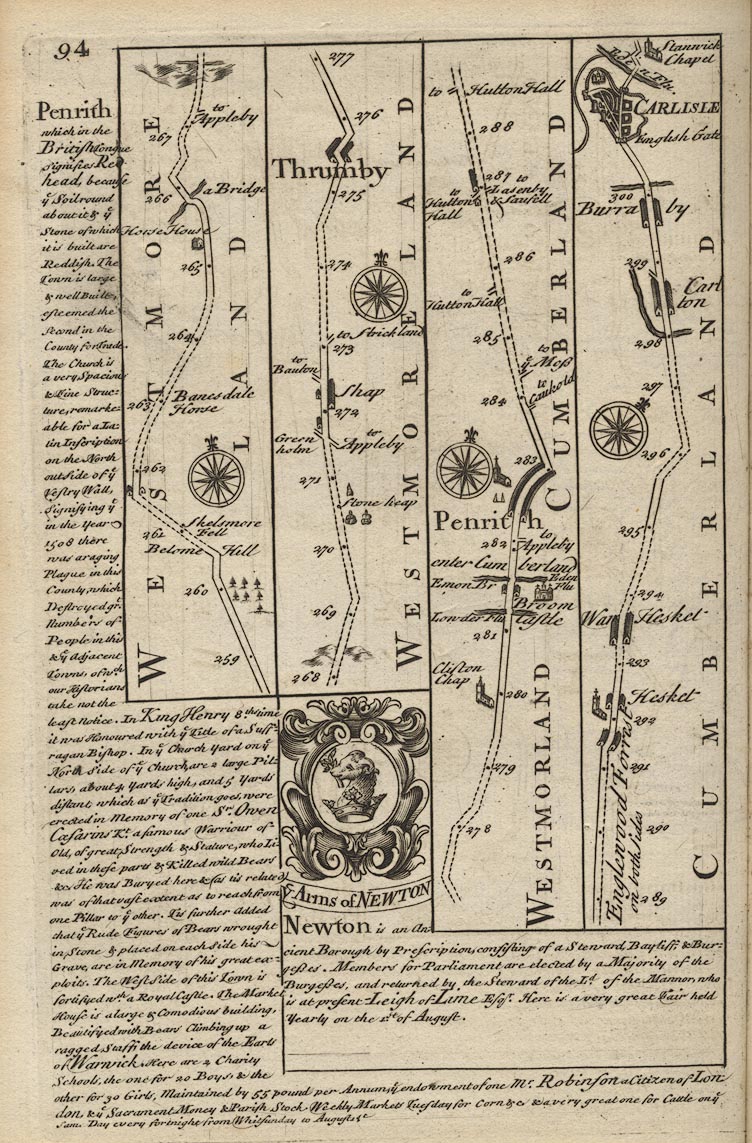 94
Penrith
which in the
British tongue
signifies Red
head, because
ye Soil round
about it & ye
Stone of which
it is built are
Reddish. The
Town is large
& well Built,
esteemed the
Second in the
County for trade.
The Church is
a very Spacious
& Fine Struc-
ture, remarke-
able for a La-
tin Inscription
on the North
outside of ye
Vestry Wall,
Signifying yt
in the Year
1508 there
was a raging
Plague in this
County, which
Destroyed gr.
Numbers of
People in this
& ye adjacent
Towns, of wch
our Historians
take not the
least Notice. In King Henry 8th time
it was Honoured with ye Title of a Suff-
ragan Bishop. In ye Church Yard on ye
North Side of ye Church, are 2 large Pil-
lars, about 4 yards high, and 5 Yards
distant, which as ye Tradition goes, were
erected in Memory of one Sr. Owen
Cæsarius Kt. a famous Warriour of
Old, of great Strength & Stature, who Li-
ved in these parts & Killed wild Bears
&c. He was Buryed here & (as tis related)
was of that vast extent as to reach from
one Pillar to ye other. Tis further added
that ye Rude Figures of Bears wrought
in Stone & placed on each side his
Grave, are in Memory of his great ex-
ploits. The West side of this Town is
fortifyed wth a Royal Castle. The Market
House is a large & Comodious building,
Beautifyed with Bears Climbing up a
ragged Staff; the device of the Earls
of Warwick. Here are 2 Charity
Schools, the one for 20 Boys & the
other for 30 Girls, Maintained by 55 pound per Annum, ye endowment of one Mr. Robinson a Citizen of Lon-
don & ye Sacrament Money & Parish Stock Weekly Markets Tuesday for Corn &c & a very great one for Cattle on ye
Sam. Day every fortnight from Whitsunday to August &c
to
Appleby
267
a Bridge
266
Horse House
265
264
Banesdale
Horse
263
262
Skelsmore
Fell
261
Belome Hill
260
259
WESTMORELAND
277
276
Thrumby
275
274
to Strickland
273
to
Baulon
Shap
272
Green
holm
to
Appleby
271
Stone heap
270
269
268
WESTMORELAND
to Hutton Hall
288
287 to
Lasenby
& Saufell
to
Hutton
Hall
286
Hutton Hall
285
to
ye Mess
to
Caukold
284
283
Penrith
282
to
Appleby
enter Cumberland
Emon Br
Eden
Flu
Broom
Castle
Lowder Flu
281
Clifton
Chap
280
279
278
CUMBERLAND
WESTMORLAND
Stanwick
Chapel
Eden Flu.
CARLISLE
English Gate
300
Burraby
299
Carl
ton
298
297
296
295
294
War Hesket
293
Hesket
292
291
290
289
Englewood Forrest
on both sides
CUMBERLAND
ye Arms of NEWTON
Newton is an An-
cient Borough by Prescription, consisting of a Steward, Bayliff, & Bur-
gesses. Members for Parliament are elected by a Majority of the
Burgesses, and returned by the Steward of the Ld. of the Mannor, who
is at present Leigh of Lime Esqr. Here is a very great Fair held
Yearly on the 1st of August.